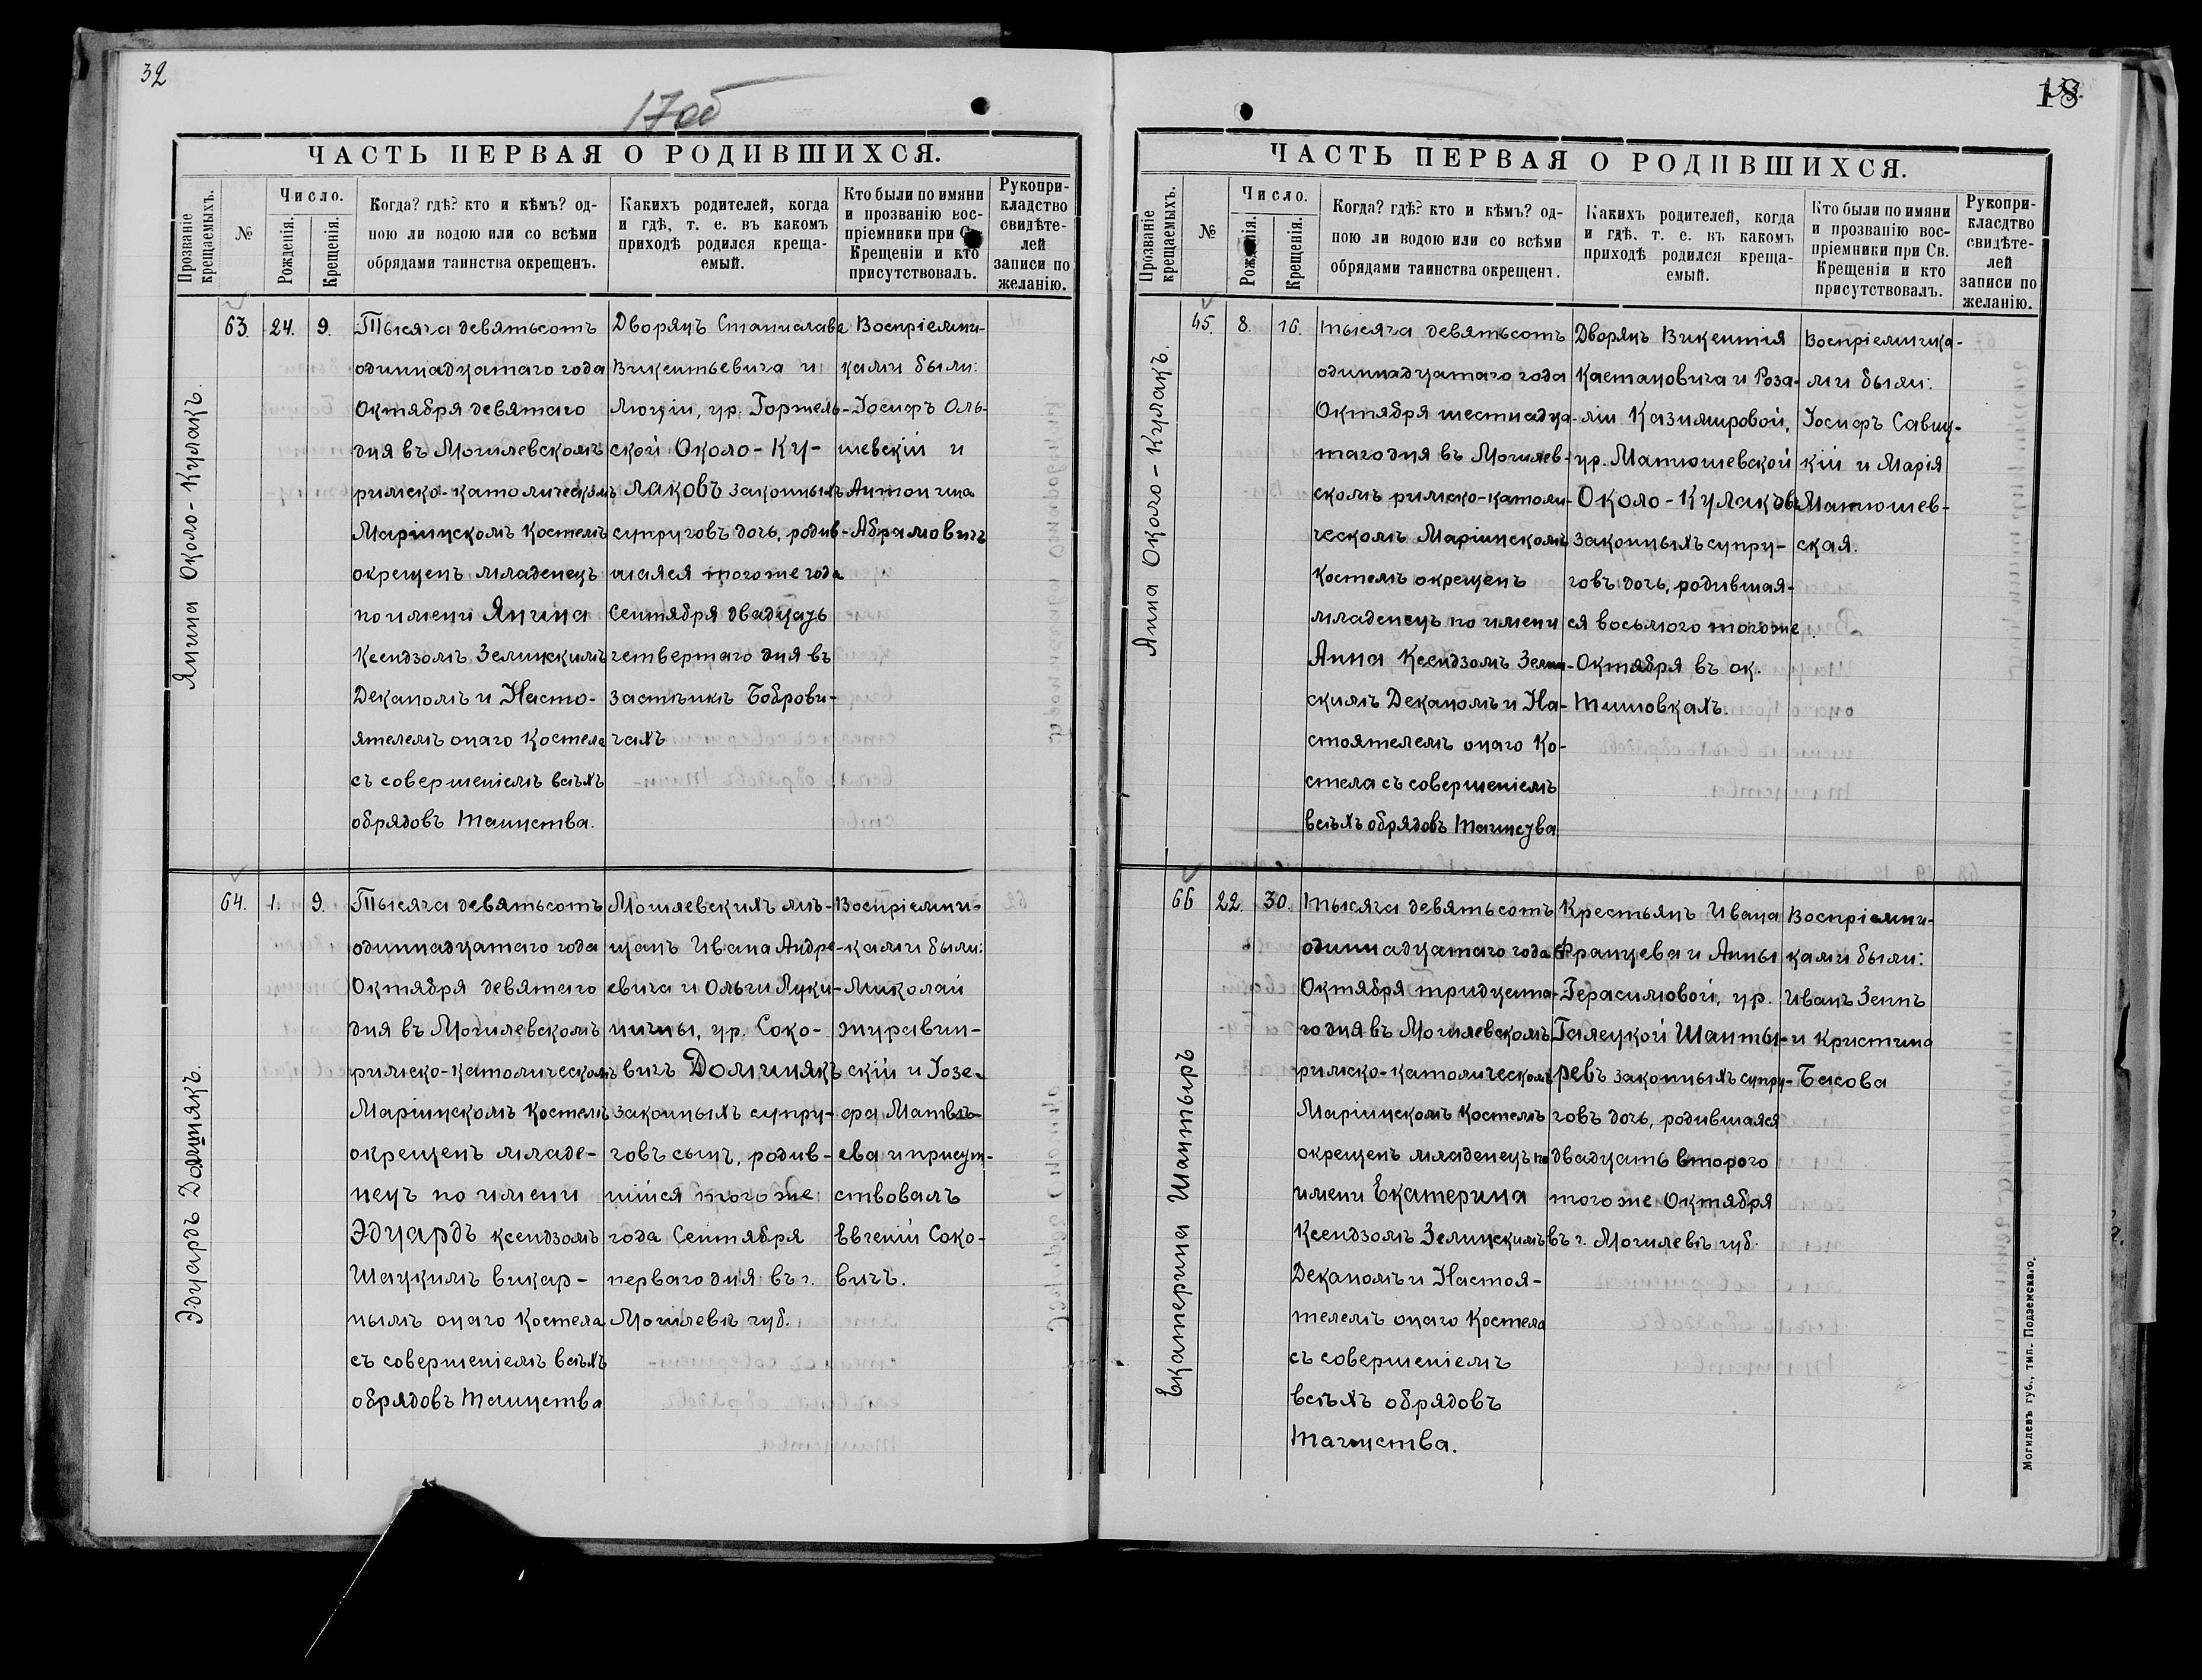 32
17об
ЧАСТЬ ПЕРВАЯ О РОДИВШИХСЯ.
Прозваніе крещаемыхъ.
№
Число.
Рожденія.
Крещенія.
Когда? гдѣ? кто и кѣмъ? од-
ною ли водою или со всѣми
обрядами таинства окрещенъ.
Какихъ родителей, когда
и гдѣ, т. е. въ какомъ
приходѣ родился креща-
емый.
Кто были по имяни
и прозванію вос-
пріемники при Св.
Крещеніи и кто
присутствовалъ.
Рукопри-
кладство
свидѣте-
лей
записи по
желанію.
Янина Около-Кулакъ.
63.
24.
9.
Тысяча девятьсотъ
одиннадцатаго года
Октября девятаго
дня въ Могилевскомъ
римско-католическомъ
Маріинскомъ Костелѣ
окрещенъ младенецъ
по имени Янина
Ксендзомъ Зелинскимъ
Деканомъ и Насто-
ятелемъ онаго Костела
съ совершеніемъ всѣхъ
обрядовъ Таинства.
Дворянъ Станислава
Викентьевича и
Люціи, ур. Горжель-
ской Около-Ку-
лаковъ законныхъ
супруговъ дочь, родив-
шаяся того же года
Сентября двадцать
четвертаго дня въ
застѣнкѣ Боброви-
чахъ
Воспріемни-
ками были:
Іосифъ Оль-
шевскій и
Антонина
Абрамовичъ
Эдуардъ Доминякъ.
64.
1.
9.
Тысяча девятьсотъ
одиннадцатаго года
Октября девятаго
дня въ Могилевскомъ
римско-католическомъ
Маріинскомъ Костелѣ
окрещенъ младе-
нецъ по имени
Эдуардъ ксендзомъ
Шацкимъ викар-
нымъ онаго Костела
съ совершеніемъ всѣхъ
обрядовъ Таинства
Могилевскихъ мѣ-
щанъ Ивана Андре-
евича и Ольги Луки-
ничны, ур. Соко-
вичъ Доминякъ
законныхъ супру-
говъ сынъ, родив-
шійся того же
года Сентября
перваго дня въ г.
Могилевѣ губ.
Воспріемни-
ками были:
Миколай
Журавин-
скій и Іозе-
фа Матвѣ-
ева и присут-
ствовалъ
Евгеній Соко-
вичъ.
18
ЧАСТЬ ПЕРВАЯ О РОДИВШИХСЯ.
Прозваніе крещаемыхъ.
№
Число.
Рожденія.
Крещенія.
Когда? гдѣ? кто и кѣмъ? од-
ною ли водою или со всѣми
обрядами таинства окрещенъ.
Какихъ родителей, когда
и гдѣ, т. е. въ какомъ
приходѣ родился креща-
емый.
Кто были по имяни
и прозванію вос-
пріемники при Св.
Крещеніи и кто
присутствовалъ.
Рукопри-
класдтво
свидѣте-
лей
записи по
желанію.
Анна Около-Кулакъ.
65.
8.
16.
тысяча девятьсотъ
одиннадцатаго года
Октября шестнадца-
таго дня въ Могилев-
скомъ римско-католи-
ческомъ Маріинскомъ
Костелѣ окрещенъ
младенецъ по имени
Анна Ксендзомъ Зелин-
скимъ Деканомъ и На-
стоятелемъ онаго Ко-
стела съ совершеніемъ
всѣхъ обрядовъ Таинсва
Дворянъ Викентія
Каетановича и Роза-
ліи Казимировой,
ур. Матюшевской
Около-Кулаковъ
законныхъ супру-
говъ дочь, родившая-
ся восьмого того же
Октября въ ок.
Тишовкахъ.
Воспріемника-
ми были:
Іосифъ Савиц-
кій и Марія
Матюшев-
ская.
Екатерина Шантыръ
66
22.
30.
тысяча девятьсотъ
одиннадцатаго года
Октября тридцата-
го дня въ Могилевскомъ
римско-католическомъ
Маріинскомъ Костелѣ
окрещенъ младенецъ по
имени Екатерина
Ксендзомъ Зелинскимъ
Деканомъ и Настоя-
телемъ онаго Костела
съ совершеніемъ
всѣхъ обрядовъ
Таинства.
Крестьянъ Ивана
Францева и Анны
Герасимовой, ур.
Галецкой Шанты-
ревъ законныхъ супру-
говъ дочь, родившаяся
двадцать второго
того же Октября
въ г. Могилевѣ губ.
Воспріемни-
ками были:
Иванъ Зеннъ
и Кристина
Быкова
Могилевъ губ., тип. Подземскаго.